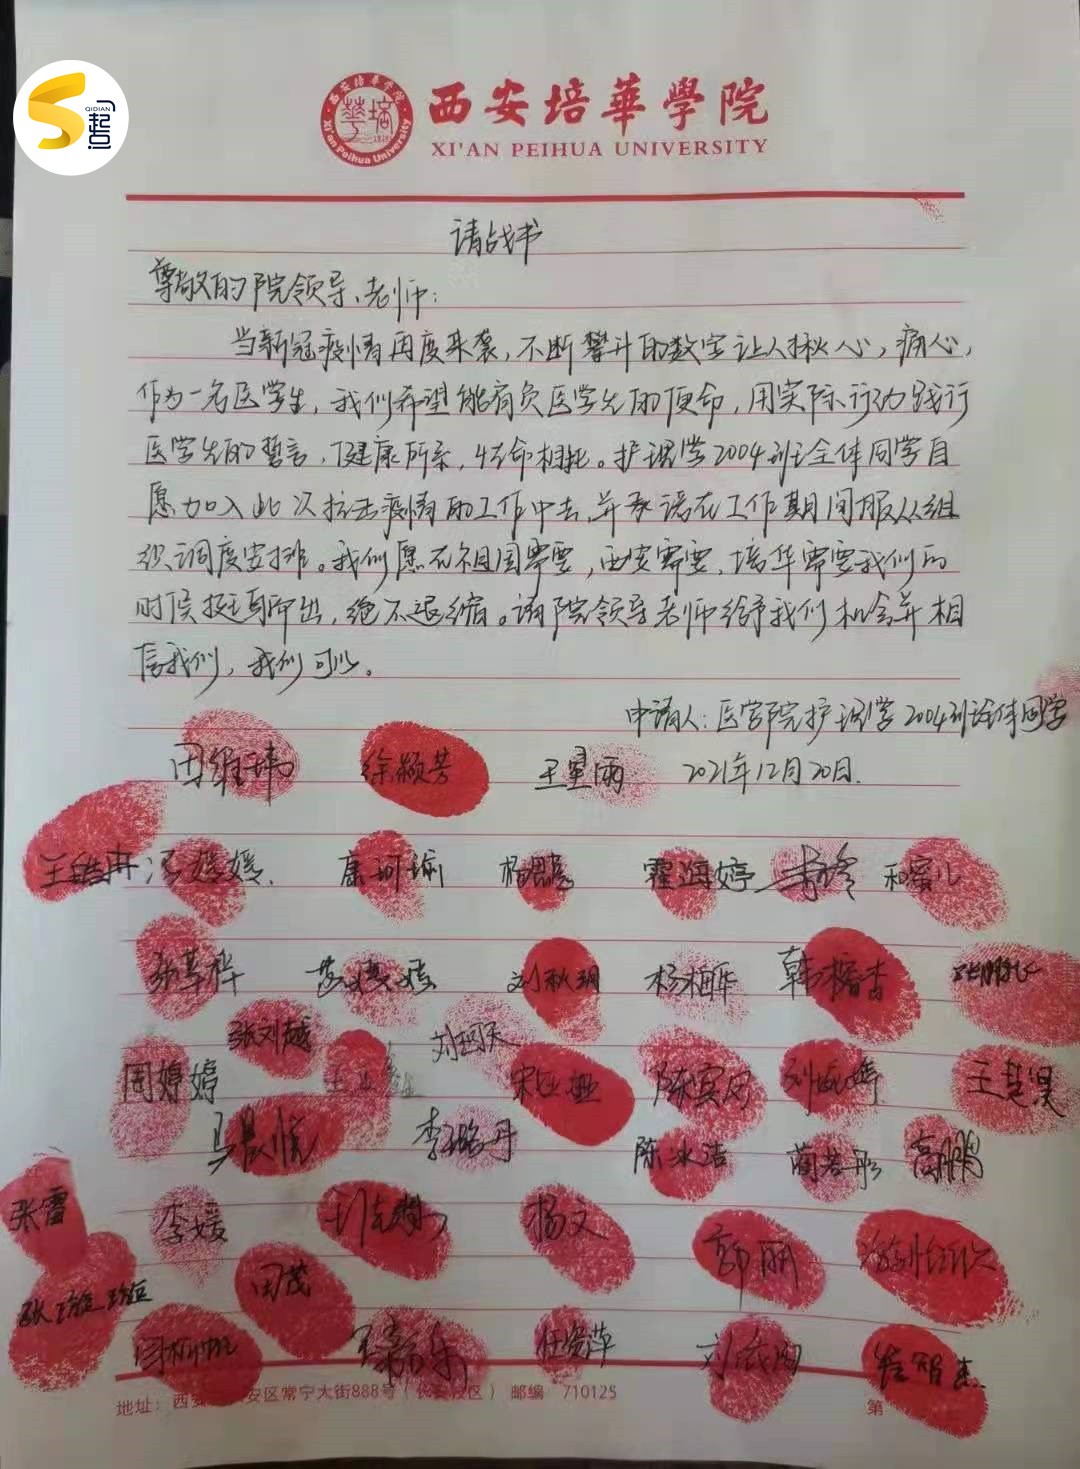 起点
QIDIAN
西安培華學院
XI'AN PEIHUA UNIVERSITY
西安培華學院
Xi'an Peihua University
请战书
尊敬的院领导、老师:
当新冠疫情再度来袭,不断攀升的数字让人揪心,痛心,
作为一名医学生,我们希望能肩负医学生的使命,用实际行动践行
医学生的誓言,健康所系,性命相托。护理学2004班全体同学自
愿加入此次抗击疫情的工作中去,并承诺在工作期间服从组
织调度安排。我们愿在祖国需要,西安需要,培华需要我们的
时候挺身而出,绝不退缩。请院领导老师给予我们机会并相
信我们,我们可以。
申请人:医学院护理学2004班全体同学
徐颖芳 王星雨 2021年12月20日.
冯媛媛. 康珂瑜 霍海婷
刘秋玥 杨柏华 韩椿杏
张刘越
周婷婷 陈宾风 王楚淏
马晨悦 李璐丹 陈冰洁 蔺若彤 高鹏
张雷 李媛 杨文 郭丽
张璇璇 田茂
任姿萍 崔智杰
地址:西安 安区常宁大街888号(长安校区) 邮编 710125
第